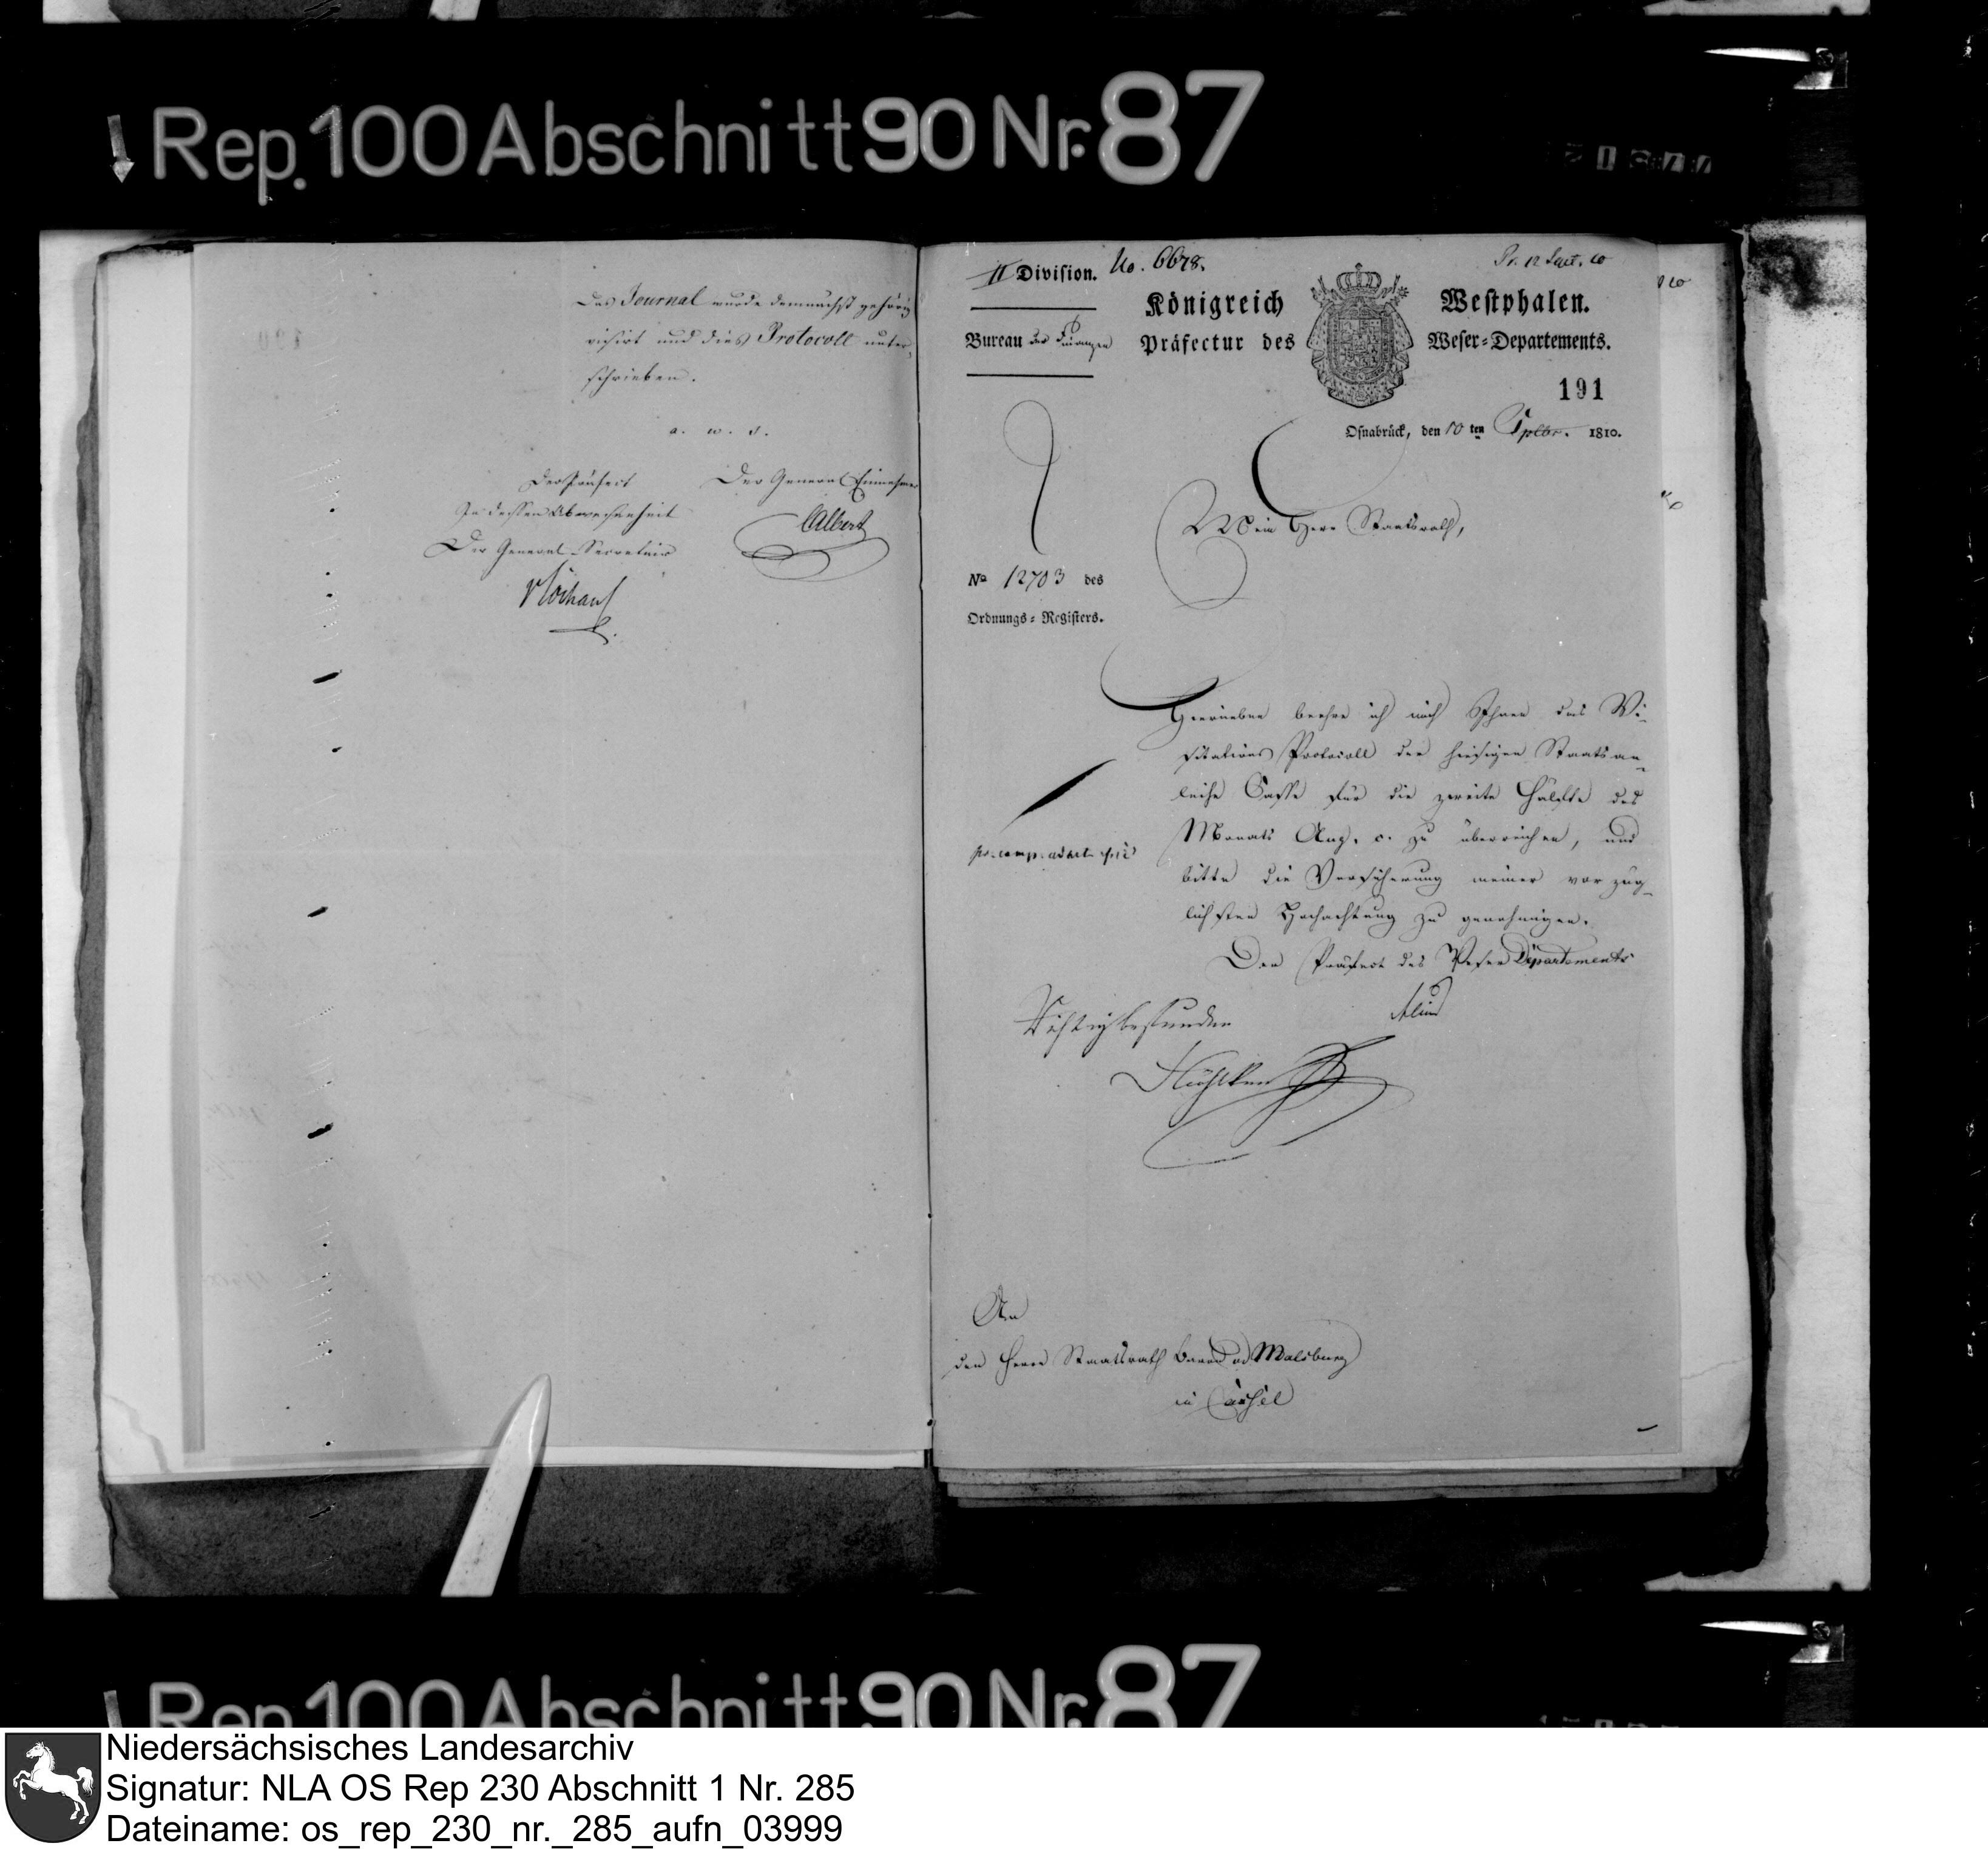 Rep. 100 Abschnitt 90 Nr. 87
Das Journal wurde demnächst gehörig
visirt und dies Protocoll unter-
schrieben.
a. w. s.
Der Präfect
In dessen Abwesenheit
Der General-Secretair
Der General Einnehmer
Albert
II Division.
No. 6678.
Bureau der Finanzen
Königreich Westphalen.
Präfectur des Weser-Departements.
191
Osnabrück, den 10 ten Spbr. 1810.
Mein Herr Staatsrath,
No 12703 des
Ordnungs-Registers.
Hierneben beehre ich mich Ihnen das Vi-
sitations Protocoll der hiesigen Staatsan-
leihe Casse für die zweite Hälfte des
Monats Aug. c. zu überreichen, und
bitte die Versicherung meiner vorzüg-
lichsten Hochachtung zu genehmigen.
Der Präfect des Weser Departements
Richtig befunden
An
den Herrn Staatsrath Baron von Malsburg
in Cassel
Rep. 100 Abschnitt 90 Nr. 87
Niedersächsisches Landesarchiv
Signatur: NLA OS Rep 230 Abschnitt 1 Nr. 285
Dateiname: os_rep_230_nr._285_aufn_03999